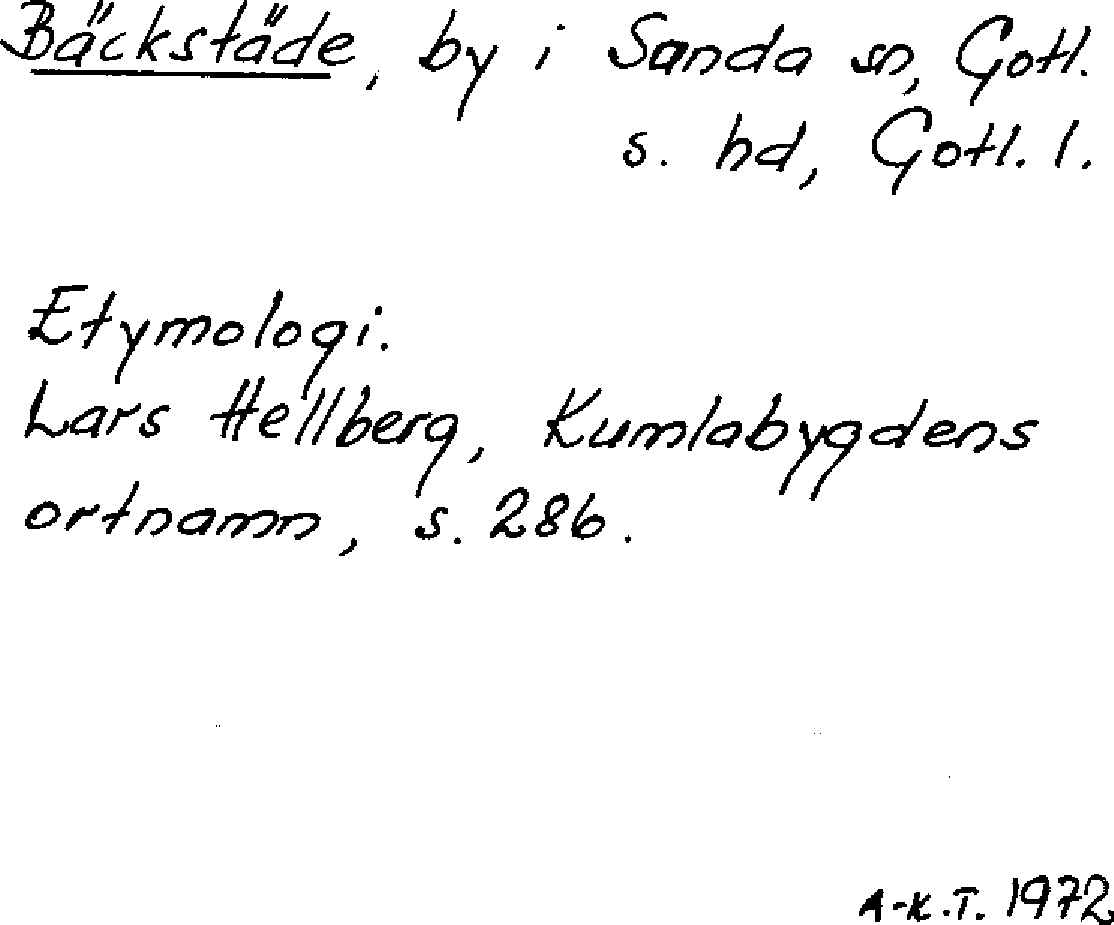 Bäckstäde, by i Sanda sn, Gotl.
s. hd, Gotl. l.
Etymologi.
Lars Hellberg, Kumlabygdens
ortnamn, s. 286.
A-K.T. 1972